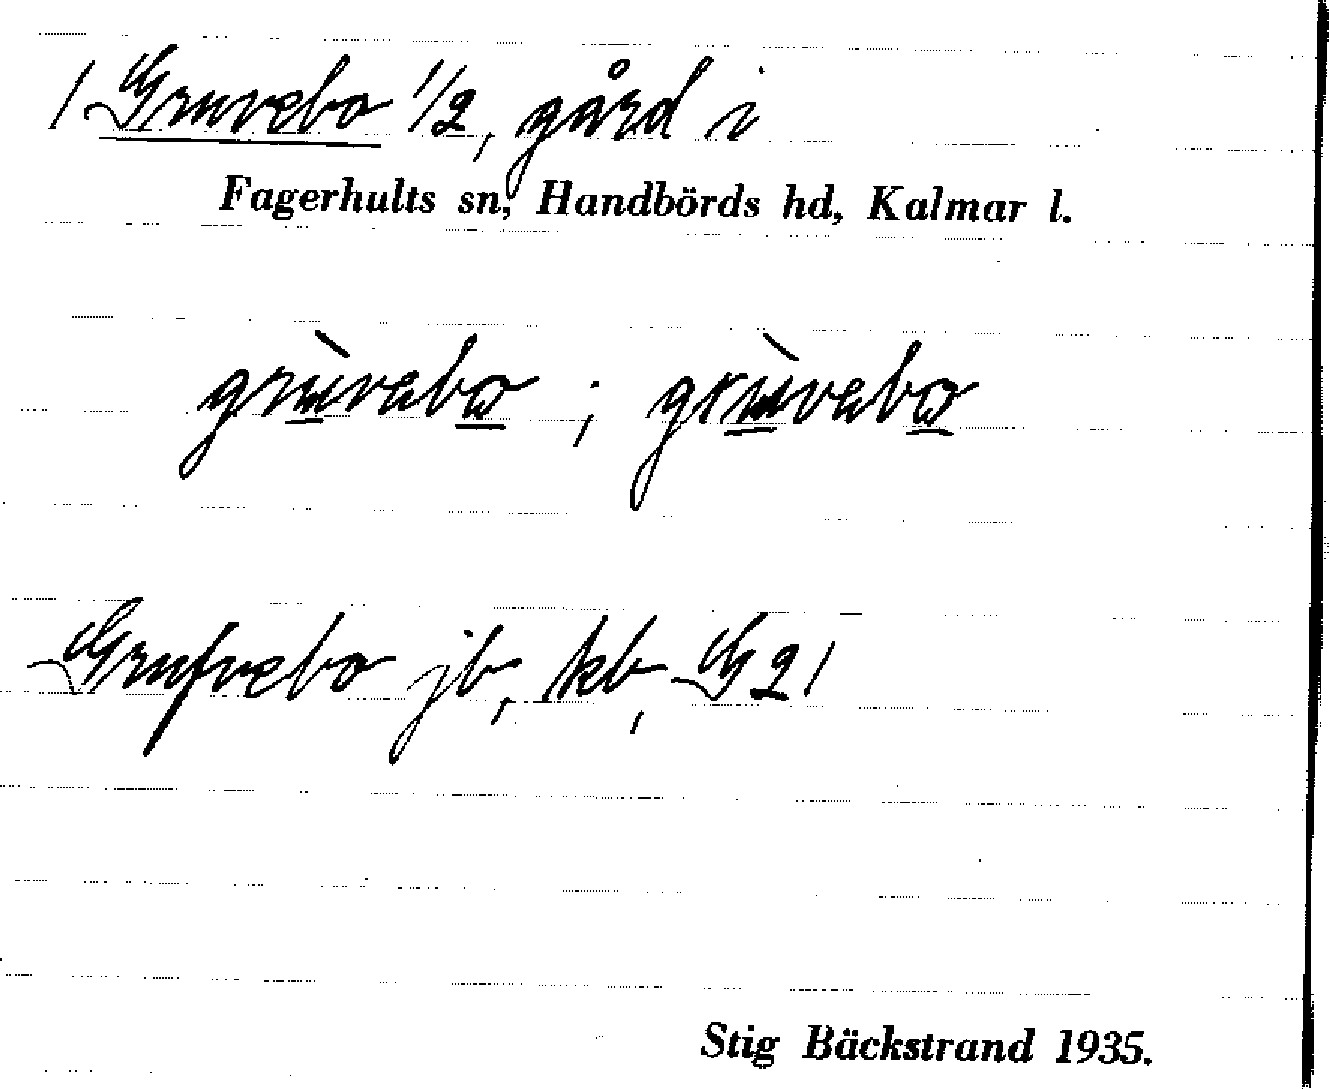 1 Gruvebo 1/2, gård i
Fagerhults sn, Handbörds hd, Kalmar l.
grùvebo ; grùvebo
Grufvebo jb, kb, G 21
Stig Bäckstrand 1935.